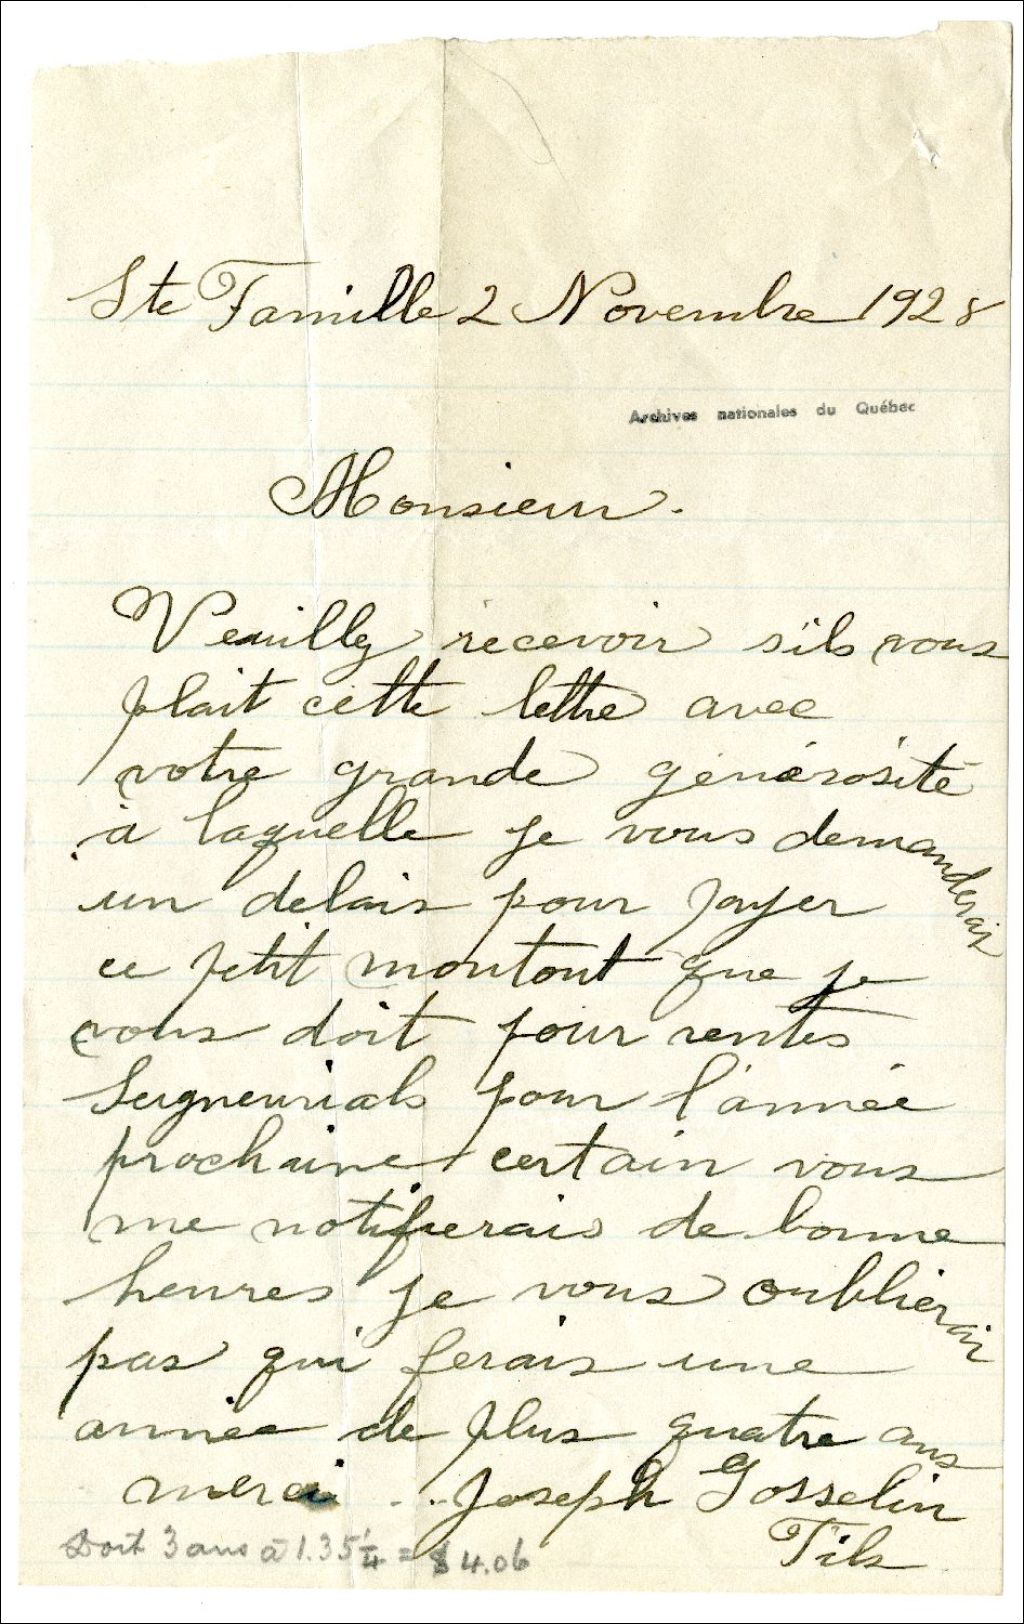 Ste Famille 2 Novembre 1928
Archives nationales du Québec
Monsieur.
Veuilley recevoir s'ils vous
plait cette lettre avec
votre grande générosité
a laquelle je vous demanderais
un delais pour payer
ce petit montout que je
vous doit pour rentes
Seigneurials pour l'année
prochaine certain vous
me notifierais de bonne
heures je vous oublierais
pas qui ferais une
année de plus quatre ans
merci ... Joseph Gosselin
Fils
Doit 3 ans à 1.35 1/4 = $4.06